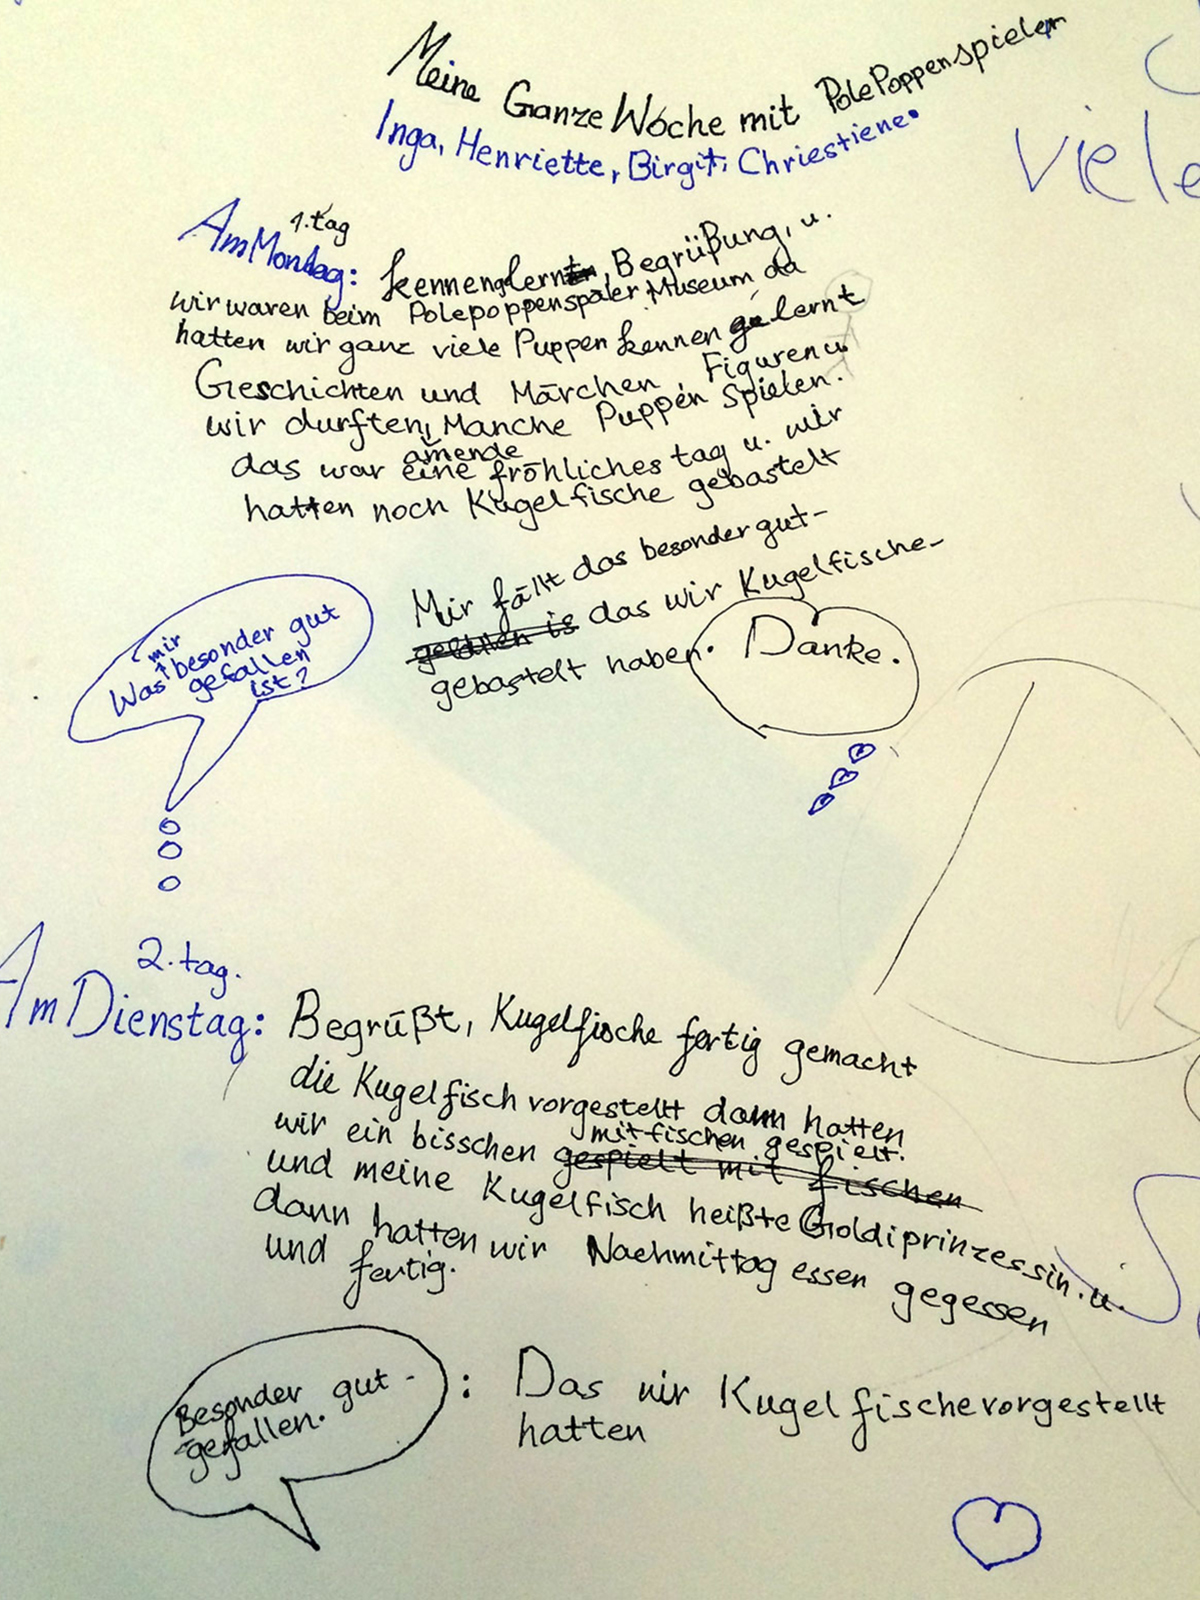 Meine Ganze Woche mit PolePoppenspieler
Inga, Henriette, Birgit, Chriestiene.
viele
1.tag
Am Montag: kennenglernt, Begrüßung, u.
wir waren beim Polepoppenspäler Museum da
hatten wir ganz viele Puppen kennen gelernt
Geschichten und Märchen, Figuren u.
wir durften, Manche Puppen Spielen.
amende
das war eine fröhliches tag u. wir
hatten noch Kugelfische gebastelt
Mir fällt das besonder gut-
gefallen is das wir Kugelfische-
gebastelt haben.
Danke.
mir
Was besonder gut
gefallen
ist?
2.tag.
Am Dienstag: Begrüßt, Kugelfische fertig gemacht
die Kugelfisch vorgestellt dann hatten
mit fischen gespielt.
wir ein bisschen gespielt mit fischen
und meine Kugelfisch heißte Goldiprinzessin. u.
dann hatten wir Nachmittag essen gegessen
und fertig.
Besonder gut -
gefallen.
: Das wir Kugelfische vorgestellt
hatten